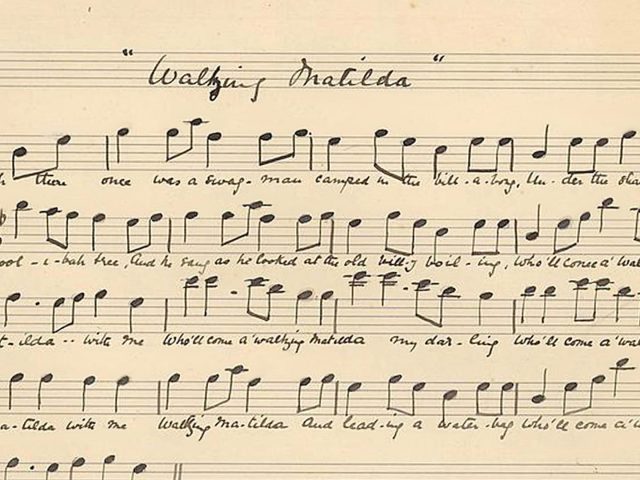 "Waltzing Matilda"
there once was a swag-man camped in the bill-a-bong, Un-der the
ool-i-bah tree, And he sang as he looked at the old billy boil-ing, Who'll come a'
t-ilda -- with me Who'll come a'waltzing Matilda my dar-ling Who'll come a'
a-tilda with me Waltzing Ma-tilda and lead-ing a water-bag Who'll come a'